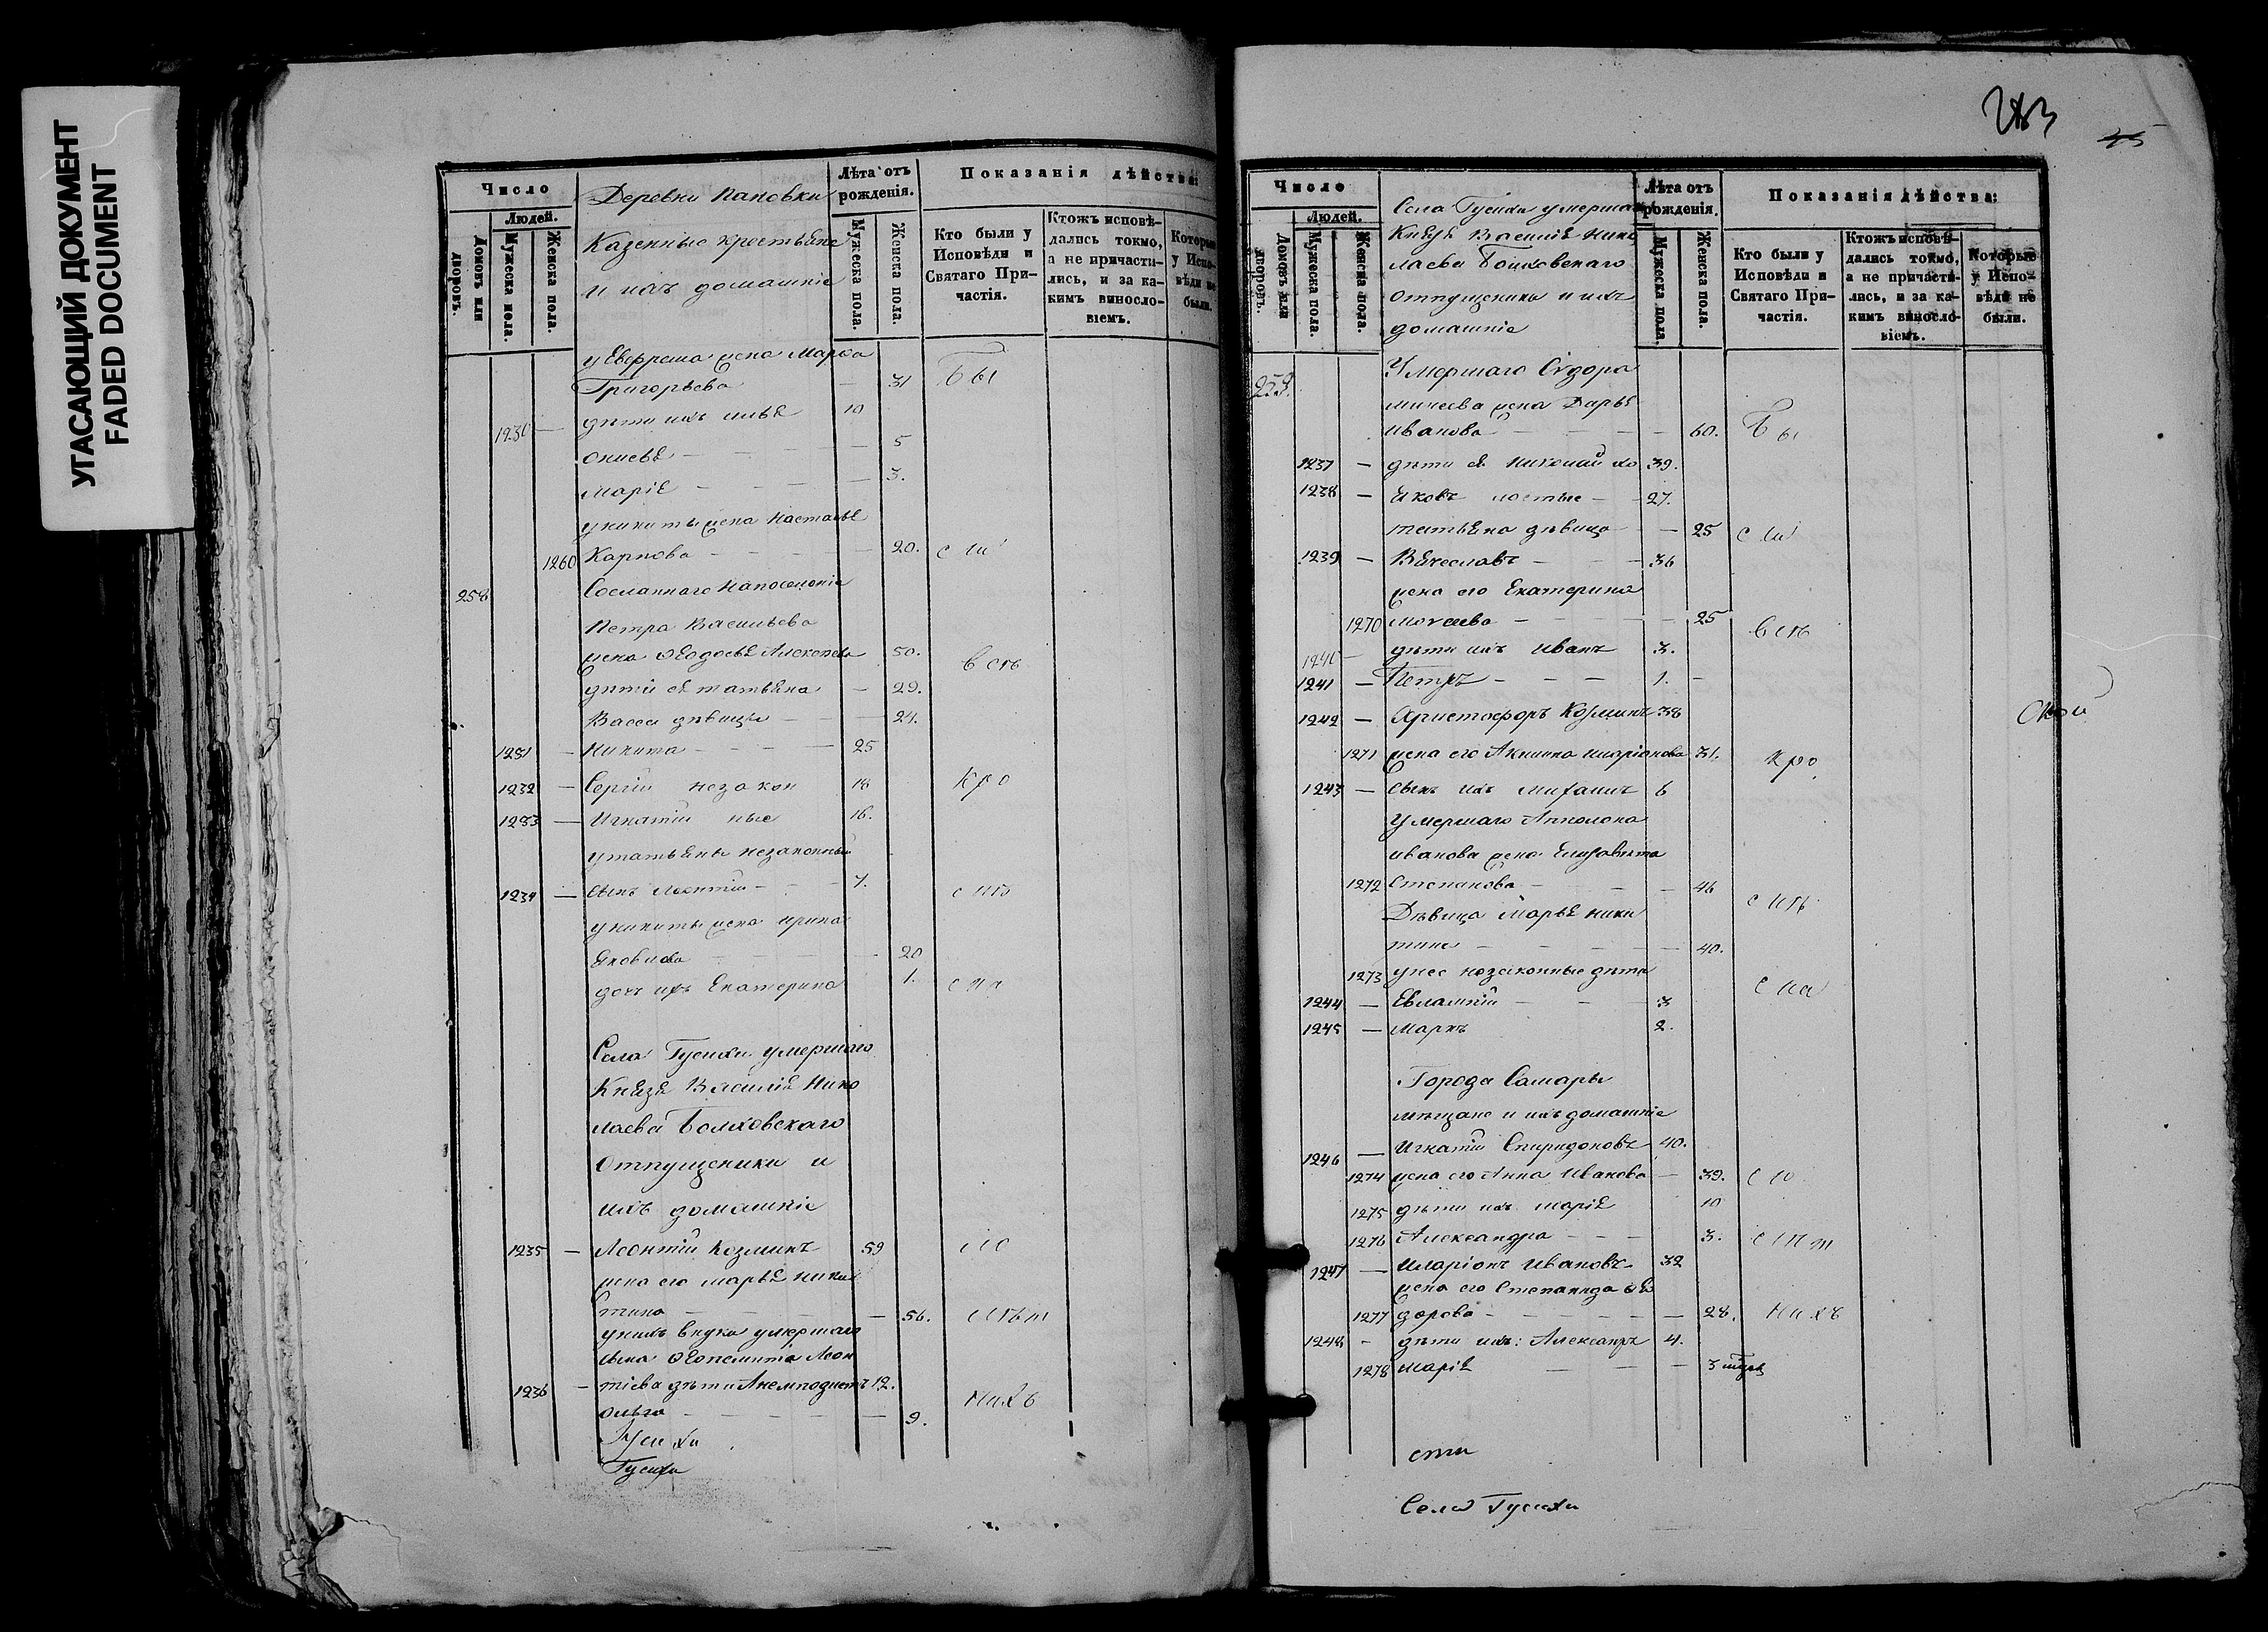 УГАСАЮЩИЙ ДОКУМЕНТ
FADED DOCUMENT
Число
Людей.
Домовъ или дворовъ.
Мужеска пола.
Женска пола.
Деревни Пановки
Казенные крестьяне
и ихъ домашніе
Лѣта отъ рожденія.
Мужеска пола.
Женска пола.
Показанія дѣйства:
Кто были у Исповѣди и Святаго При-
частія.
Ктожъ исповѣ-
дались токмо,
а не причасти-
лись, и за ка-
кимъ винсло-
віемъ.
Которые у Испо-
вѣди не были.
у Евфрема жена Марѳа
Григорьева — 31 Бы
1230 — дѣти ихъ Илья 10
— 5
Марія — 3.
у Никиты жена Настасья
1260 Карпова — 20.
258 Сосланнаго на поселеніе
Петра Васильева
жена Ѳедосья Алексѣева 50.
дѣти ея Татьяна — 29.
Васса дѣвицы — 24.
1231 — Никита — 25
1232 — Сергій незакон 18 кро
1233 — Игнатій ные 16.
у Татьяны незаконный
1234 — сынъ Леонтій — 7.
у Никиты жена Ирина
Яковлева — 20
дочь ихъ Екатерина 1.
Села Гусихи умершаго
Князя Василія Нико
лаева Болховскаго
Отпущеники и
ихъ домашніе
1235 — Леонтій Козминъ 59
жена его Марья Ники
тина — 56.
у нихъ внуки умершаго
сына Леон
1236 — тіева дѣти Анемподистъ 12.
Ольга — 9. нихъ
Гусихи
Гусихи
45
Число
Людей.
Домовъ или дворовъ.
Мужеска пола.
Женска пола.
Села Гусихи умершаго
Князя Василія Нико
лаева Болховскаго
отпущеники и ихъ
домашніе
Лѣта отъ рожденія.
Мужеска пола.
Женска пола.
Показанія дѣйства:
Кто были у Исповѣди и Святаго При-
частія.
Ктожъ исповѣ-
дались токмо,
а не причасти-
лись, и за ка-
кимъ винсло-
віемъ.
Которые у Испо-
вѣди не были.
259. Умершаго Сидора
Михеева жена Дарья
Иванова — 60. Бы
1237 — дѣти ея Николай хо 39.
1238 — Яковъ лостые — 27.
Татьяна дѣвица — 25
1239 — Вячеславъ — 36
жена его Екатерина
1270 Моисеева — 25
1240 — дѣти ихъ Иванъ 3.
1241 — Петръ — 1.
1242 — Христофоръ Козминъ 38
1271 жена его Акилина Иларіонова 31. кро
1243 — сынъ ихъ Михаилъ 6
Умершаго Апполона
Иванова жена Елизавета
1272 Степанова — 46
Дѣвица Марья Ники
тина — 40.
1273 у нее незаконные дѣти
1244 — Евлампій — 3
1245 — Маркъ 2.
Города Самары
мѣщане и ихъ домашніе
1246 — Игнатій Спиридоновъ 40.
1274 жена его Анна Иванова — 39.
1275 дѣти ихъ Марія 10
1276 Александра — 3.
1247 — Иларіонъ Ивановъ 32
жена его Степанида Ѳе
1277 дорова — 28. нихъ
1248 — дѣти ихъ: Александръ 4.
1278 Марія — 3
сти
Села Гусихи